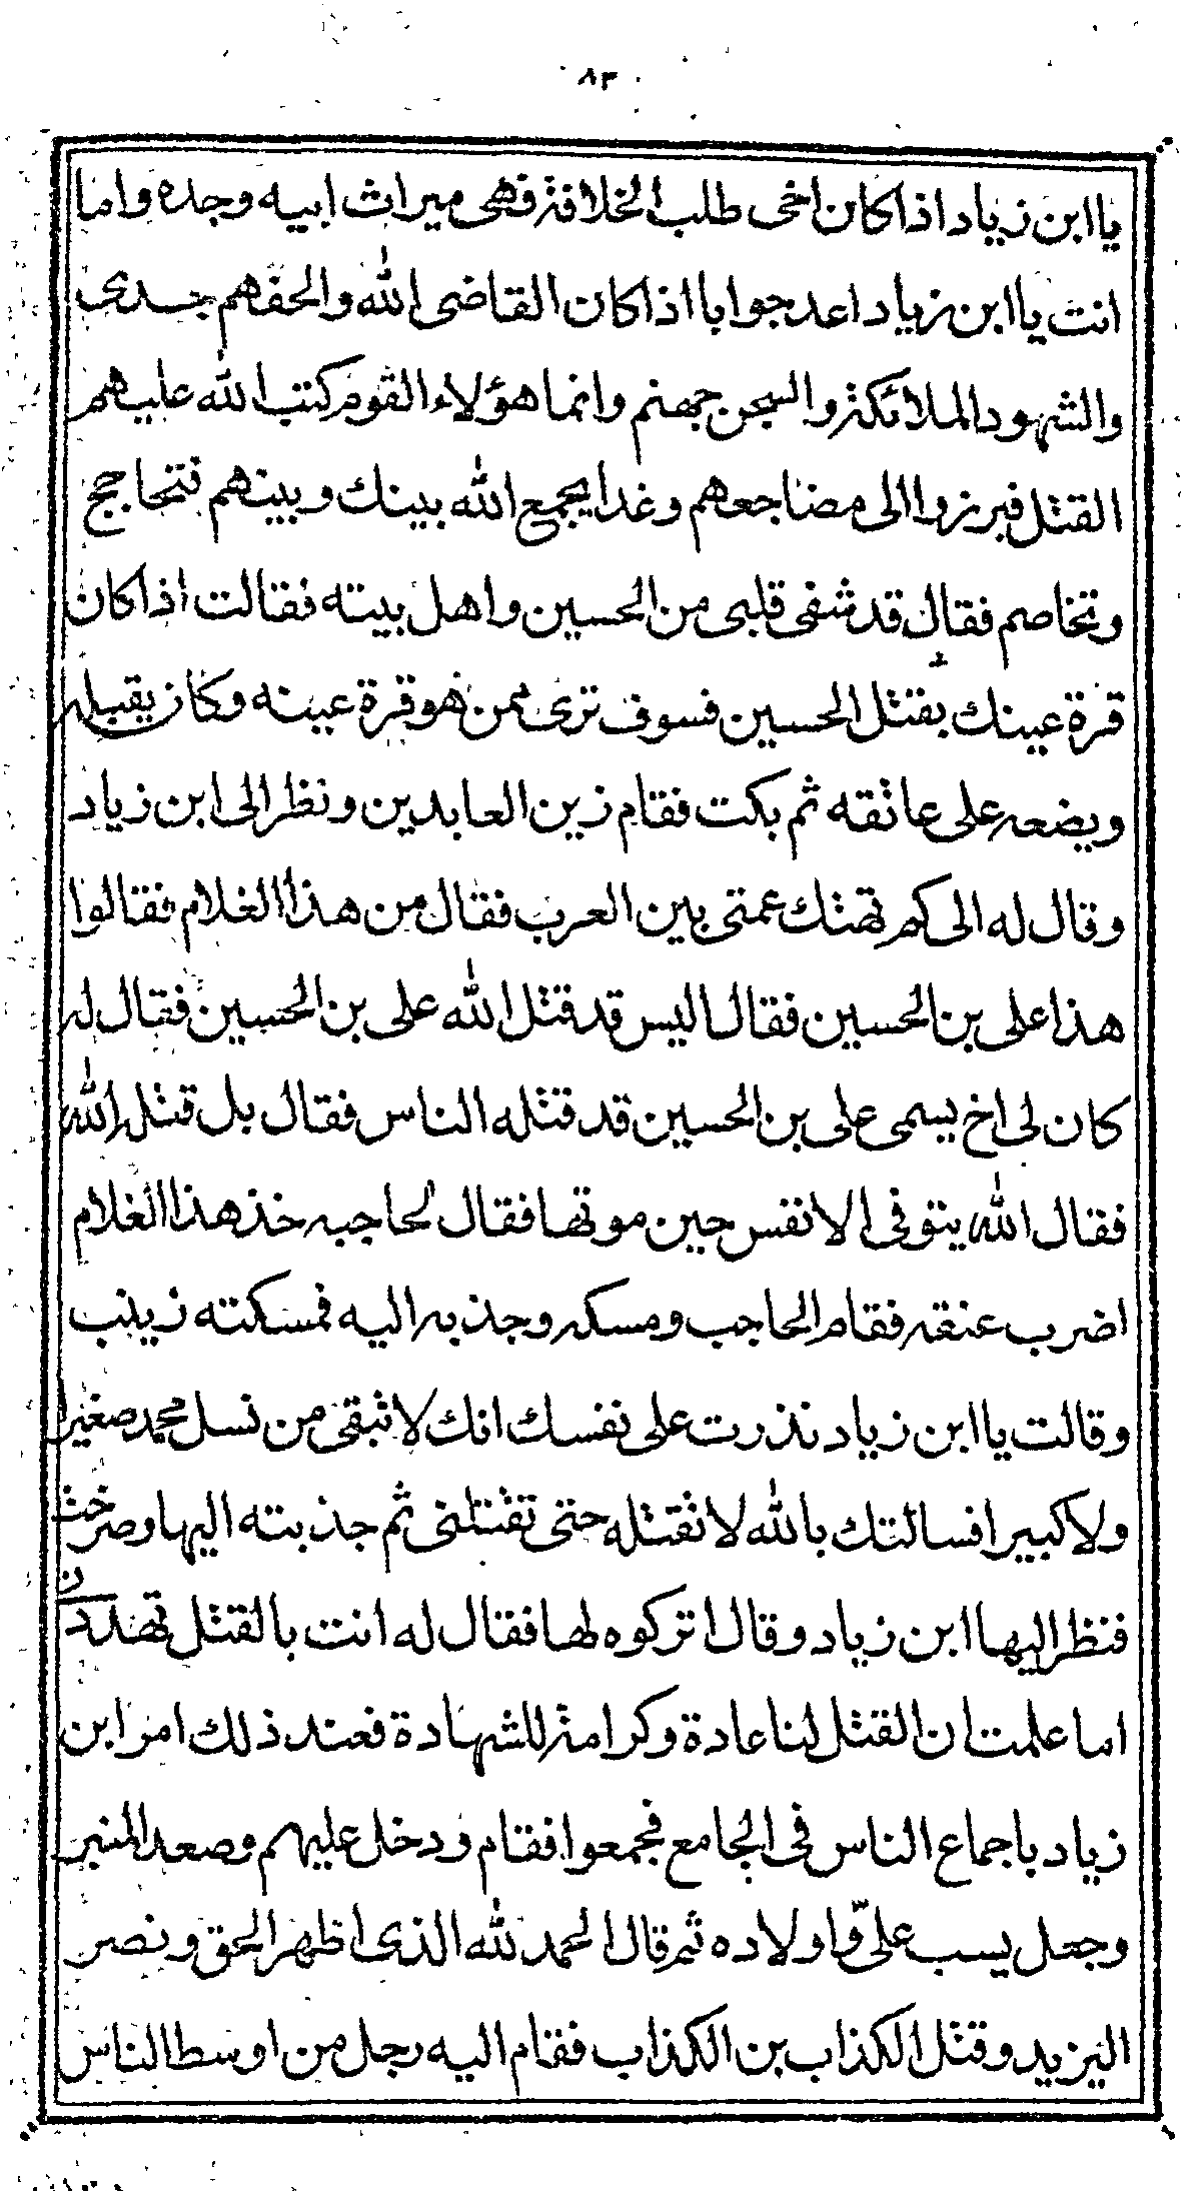 ٨٣
يا ابن زياد اذا كان اخى طلب الخلافة فهى ميراث ابيه وجده واما
انت يا ابن زياد اعد جوابا اذا كان القاضى الله والخصم جدى
والشهود الملائكة والسجن جهنم وانما هؤلاء القوم كتب الله عليهم
القتل فبرزوا الى مضاجعهم وغدا يجمع الله بينك وبينهم فتحاجج
وتخاصم فقال قد شفى قلبى من الحسين واهل بيته فقالت اذا كان
قرة عينك بقتل الحسين فسوف ترى ممن هو قرة عينه وكان يقبله
ويضعه على عاتقه ثم بكت فقام زين العابدين ونظر الى ابن زياد
وقال له الى كم تهتك عمتى بين العرب فقال من هذا الغلام فقالوا
هذا على بن الحسين فقال اليس قد قتل الله على بن الحسين فقال له
كان لى اخ يسمى على بن الحسين قد قتله الناس فقال بل قتله الله
فقال الله يتوفى الانفس حين موتها فقال لحاجبه خذ هذا الغلام
اضرب عنقه فقام الحاجب ومسكه وجذبه اليه فمسكته زينب
وقالت يا ابن زياد نذرت على نفسك انك لا تبقى من نسل محمد صغيرا
ولا كبيرا فسالتك بالله لا تقتله حتى تقتلنى ثم جذبته اليها وصرخت
فنظر اليها ابن زياد وقال اتركوه لها فقال له انت بالقتل تهددن
اما علمت ان القتل لنا عادة وكرامة للشهادة فعند ذلك امر ابن
زياد باجماع الناس فى الجامع فجمعوا فقام ودخل عليهم وصعد المنبر
وجعل يسب علىّ واولاده ثم قال الحمد لله الذى اظهر الحق ونصر
اليزيد وقتل الكذاب بن الكذاب فقام اليه رجل من اوسط الناس